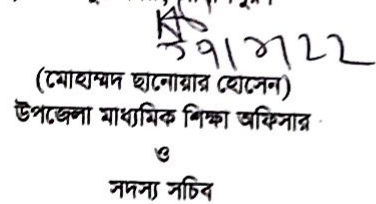 (মোহাম্মদ ছানোয়ার হোসেন)
উপজেলা মাধ্যমিক শিক্ষা অফিসার
ও
সদস্য সচিব